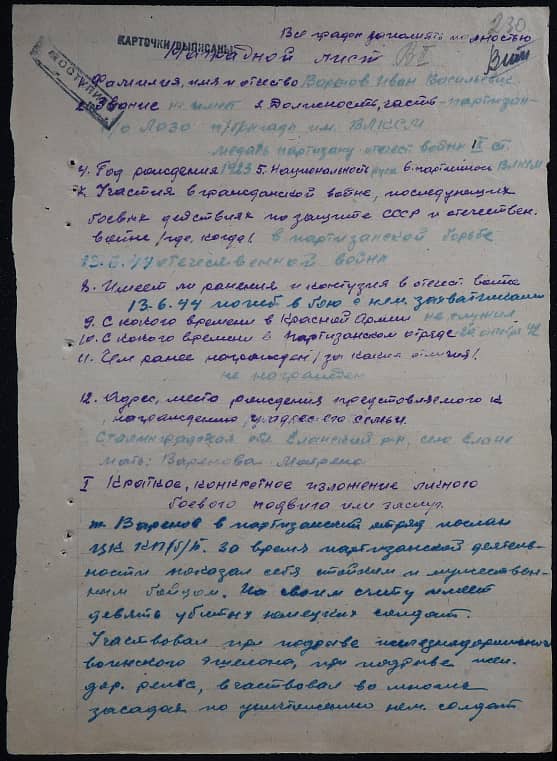 230
Все графы заполнять полностью
КАРТОЧКИ ВЫПИСАНЫ
Наградной лист
Фамилия, имя и отчество Варенов Иван Васильевич
2. Звание не имеет 3. Должность, часть - партизан-
о Лазо п/бригады им. ВЛКСМ
медаль партизану отечест войны II ст
4. Год рождения 1923 5. Национальность русс 6. партийной ВЛКСМ
7. Участия в гражданской войне, последующих
боевых действиях по защите СССР и отечествен.
войне /где, когда/ в партизанской борьбе
13.6.44 отечественной война
8. Имеет ли ранения и контузия в отечест войне
13.6.44 погиб в бою с нем. захватчиками
9. С какого времени в Красной Армии не служил
10. С какого времени в партизанском отряде октября 42
11. Чем ранее награжден /за какия отличия/
не награжден
12. Адрес, место рождения представляемого к
награждению, и адрес его семьи
Сталинградская обл. Еланский р-н, село Елань
мать: Варенова Матрена
I Краткое, конкретное изложение личного
боевого подвига или заслуг.
т. Варенов в партизанский отряд послан
ЦК КП/б/Б. За время партизанской деятель-
ности показал себя стойким и мужествен-
ным бойцом. На своем счету имеет
девять убитых немецких солдат.
Участвовал при подрыве железнодорожного
воинского эшелона, при подрыве жел.
дор. рельс, участвовал во многих
засадах по уничтожению нем. солдат